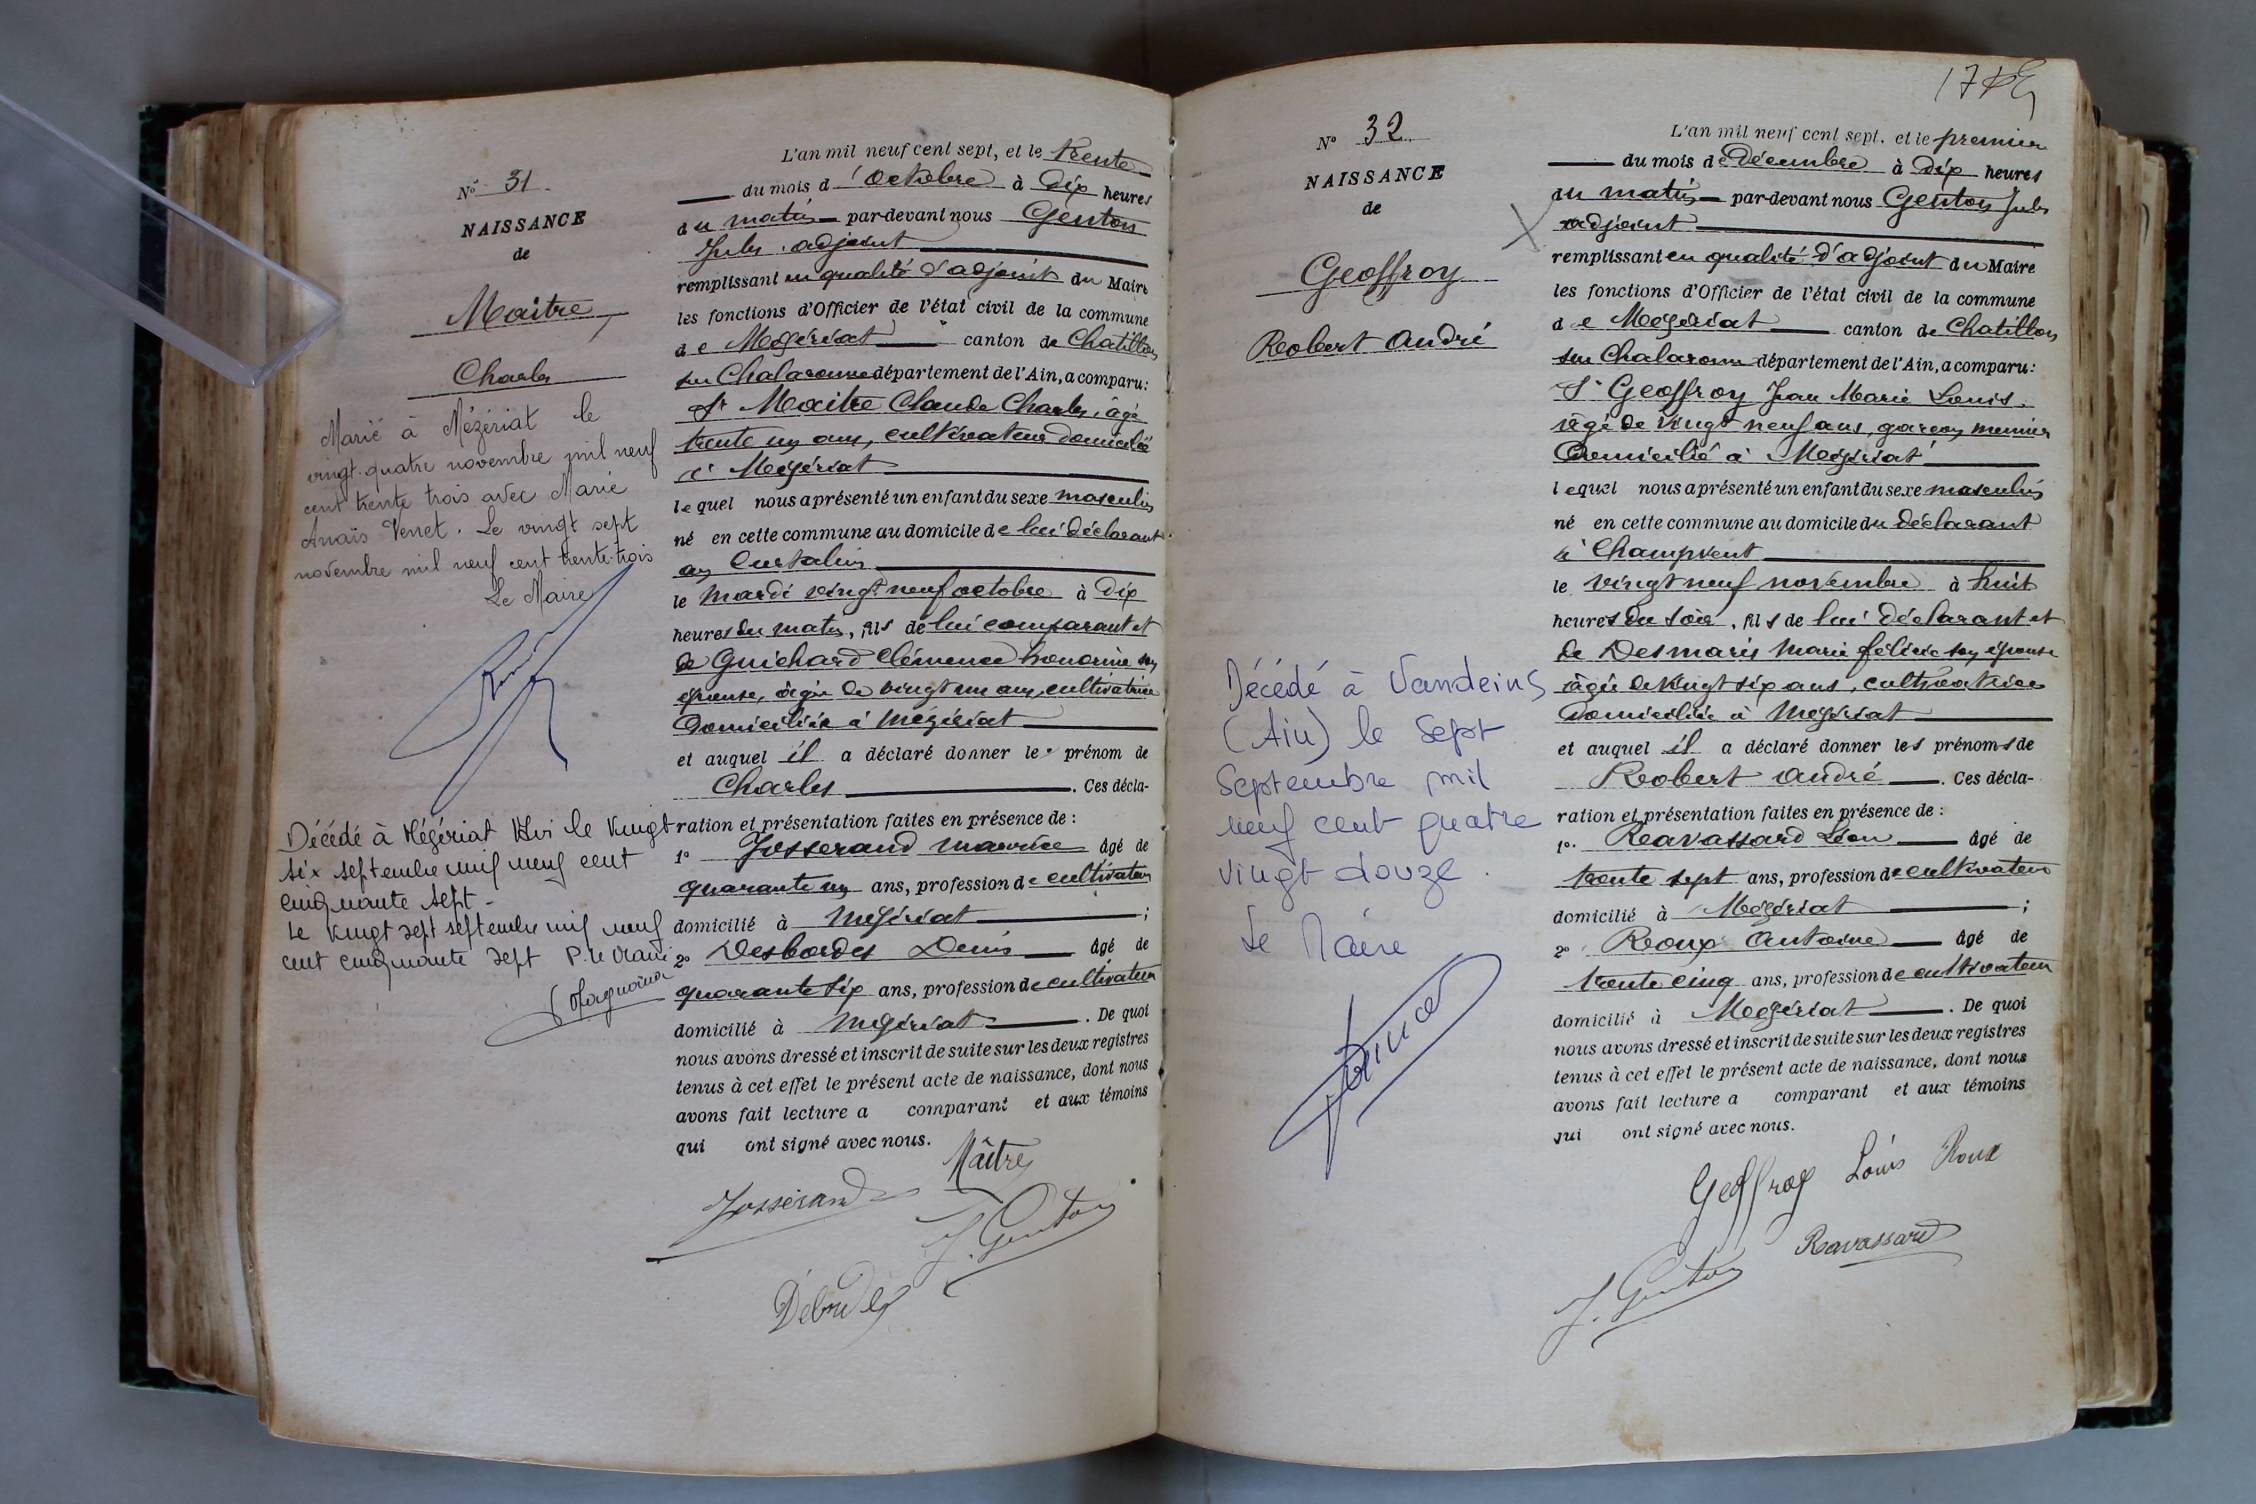 N° 31
NAISSANCE
de
Maître
Charles
Marié à Mézériat le
vingt-quatre novembre mil neuf
cent trente trois avec Marie
Anaïs Venet. Le vingt sept
novembre mil neuf cent trente-trois
Le Maire
Décédé à Mézériat le vingt
six septembre mil neuf cent
cinquante sept -
Le vingt sept septembre mil neuf
cent cinquante sept P. le Maire
L'an mil neuf cent sept, et le trente
du mois d'octobre à dix heures
du matin par-devant nous Genton
Jules adjoint
remplissant en qualité d'adjoint du Maire
les fonctions d'Officier de l'état civil de la commune
de Mézériat canton de Chatillon
sur Chalaronne département de l'Ain, a comparu:
Sr Maitre Claude Charles, âgé
trente un ans, cultivateur domicilié
à Mézériat
lequel nous a présenté un enfant du sexe masculin
né en cette commune au domicile de lui déclarant
au Curtalin
le mardi vingt neuf octobre à dix
heures du matin, fils de lui comparant et
de Guichard Clémence honorine son
épouse, âgée de vingt un ans, cultivatrice
domiciliée à Mézériat
et auquel il a déclaré donner le prénom de
Charles. Ces décla-
ration et présentation faites en présence de :
1° Josserand Maurice âgé de
quarante un ans, profession de cultivateur
domicilié à Mézériat ;
2° Desbordes Denis âgé de
quarante six ans, profession de cultivateur
domicilié à Mézériat. De quoi
nous avons dressé et inscrit de suite sur les deux registres
tenus à cet effet le présent acte de naissance, dont nous
avons fait lecture a comparant et aux témoins
qui ont signé avec nous.
Maître
Josserand
J. Genton
Débordes
N° 32
NAISSANCE
de
Geoffroy
Robert André
Décédé à Vandeins
(Ain) le Sept
Septembre mil
neuf cent quatre
vingt douze.
Le Maire
L'an mil neuf cent sept, et le premier
du mois de Décembre à dix heures
du matin par-devant nous Genton Jules
adjoint
remplissant en qualité d'adjoint du Maire
les fonctions d'Officier de l'état civil de la commune
de Mézériat canton de Chatillon
sur Chalaronne département de l'Ain, a comparu:
Sr Geoffroy Jean Marie Louis,
âgé de vingt neuf ans, garçon meunier
domicilié à Mézériat
lequel nous a présenté un enfant du sexe masculin
né en cette commune au domicile du déclarant
à Champvent
le vingt neuf novembre à huit
heures du soir, fils de lui déclarant et
de Desmaris Marie félicie son épouse
âgée de vingt six ans, cultivatrice
domiciliée à Mézériat
et auquel il a déclaré donner les prénoms de
Robert André. Ces décla-
ration et présentation faites en présence de :
1° Ravassard Léon âgé de
trente sept ans, profession de cultivateur
domicilié à Mézériat ;
2° Roux Antoine âgé de
trente cinq ans, profession de cultivateur
domicilié à Mézériat. De quoi
nous avons dressé et inscrit de suite sur les deux registres
tenus à cet effet le présent acte de naissance, dont nous
avons fait lecture a comparant et aux témoins
qui ont signé avec nous.
Geoffroy Louis Roux
Ravassard
J. Genton